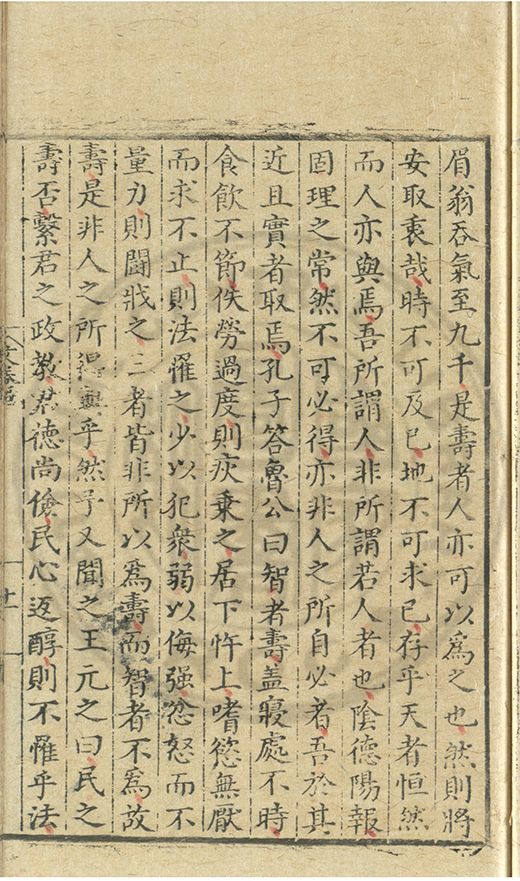 眉翁吞氣至九千是壽者人亦可以爲之也然則將
安取衷哉時不可及已地不可求已存乎天者恒然
而人亦與焉吾所謂人非所謂若人者也陰德陽報
固理之常然不可必得亦非人之所自必者吾於其
近且實者取焉孔子答魯公曰智者壽蓋寢處不時
食飲不節佚勞過度則疾乘之居下忤上嗜慾無厭
而求不止則法罹之少以犯衆弱以侮强忿怒而不
量力則鬪戕之三者皆非所以爲壽而智者不爲故
壽是非人之所得與乎然予又聞之王元之曰民之
壽否繫君之政教君德尚儉民心返醇則不罹乎法
十一